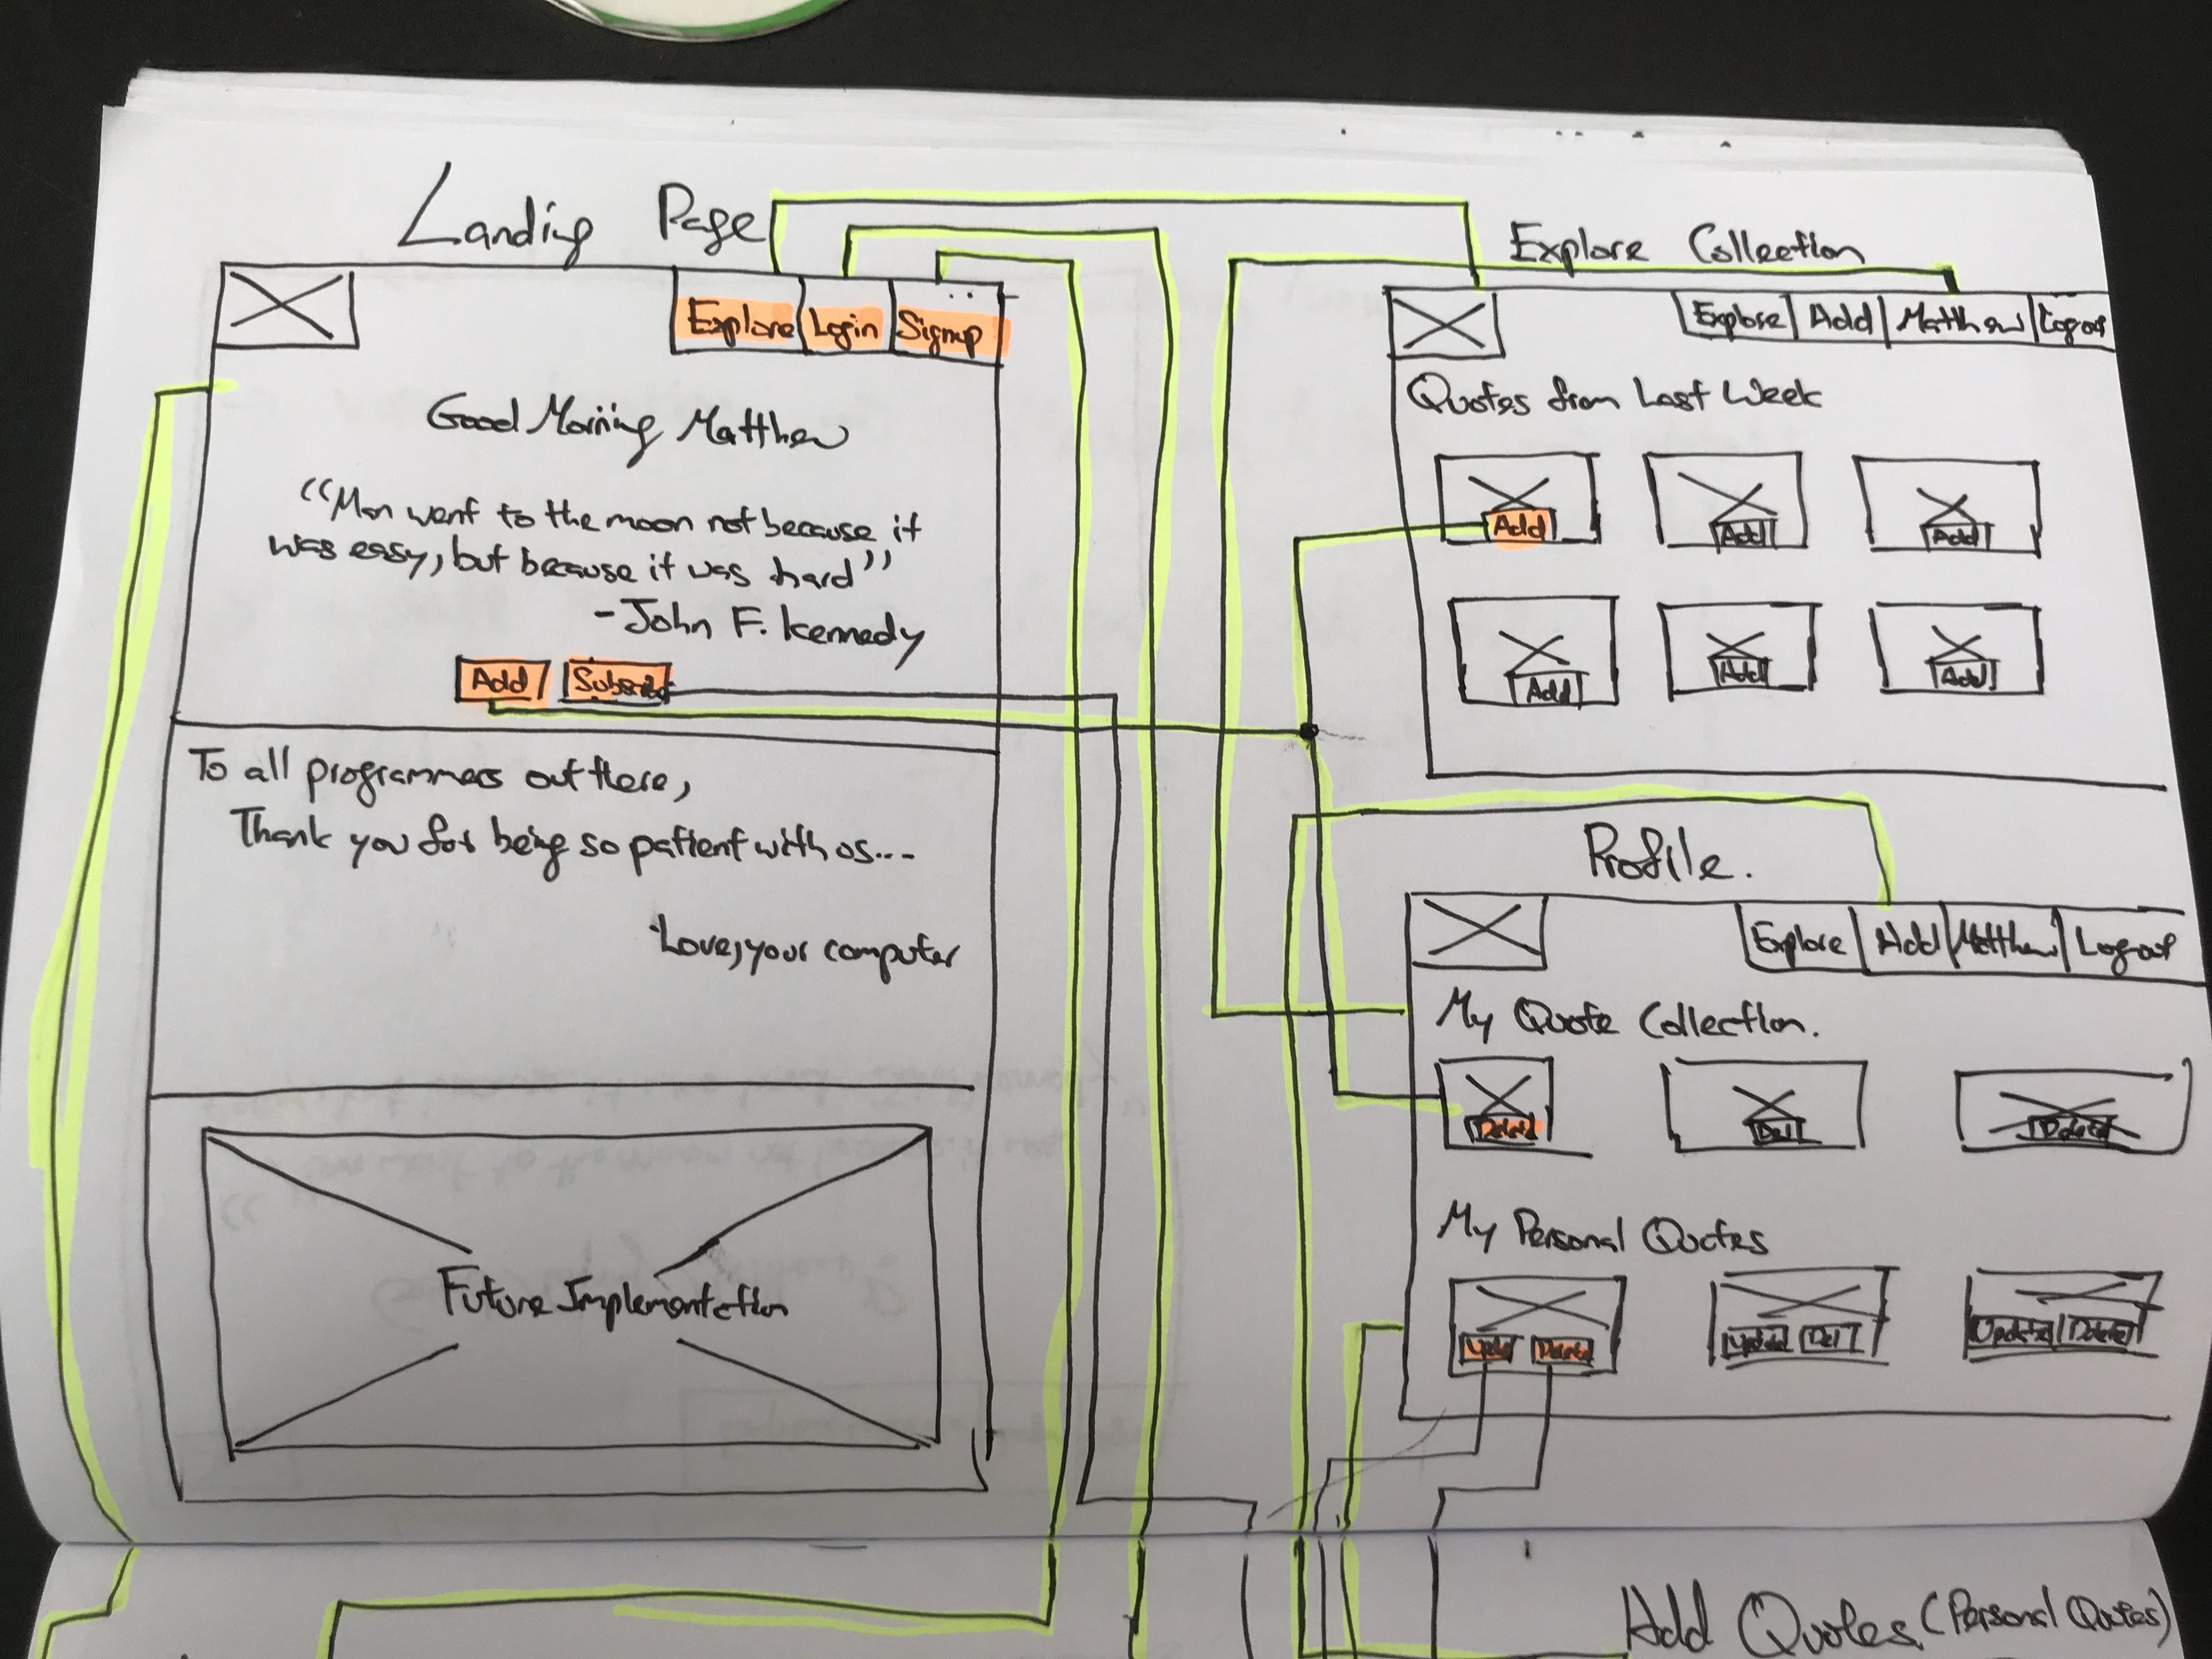 Landing Page
Explore
Login
Signup
...
Good Morning Matthew
"Man went to the moon not because it
was easy, but because it was hard"
- John F. Kennedy
Add
To all programmers out there,
Thank you for being so patient with us...
-Love, your computer
Future Implementation
Explore Collection
Explore
Add
Matthew
Logout
Quotes from Last Week
Add
Add
Add
Add
Add
Add
Profile.
Explore
Add
Matthew
Logout
My Quote Collection.
Delete
Del
Delete
My Personal Quotes
Update
Delete
Update
Del
Update
Delete
Add Quotes (Personal Quotes)